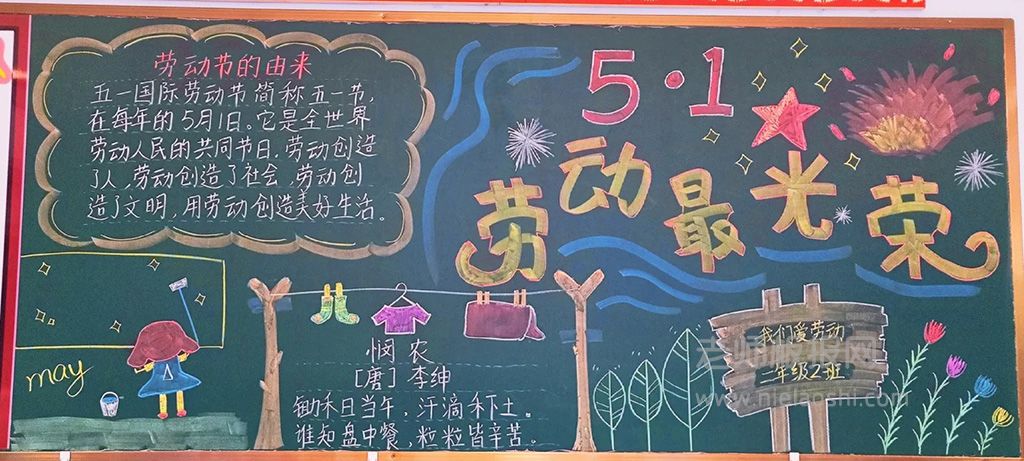 劳动节的由来
五一国际劳动节简称五一节,
在每年的5月1日。它是全世界
劳动人民的共同节日。劳动创造
了人,劳动创造了社会,劳动创
造了文明,用劳动创造美好生活。
5·1
劳动最光荣
may
悯农
[唐] 李绅
锄禾日当午,汗滴禾下土。
谁知盘中餐,粒粒皆辛苦。
我们爱劳动
二年级2班
老师板报网